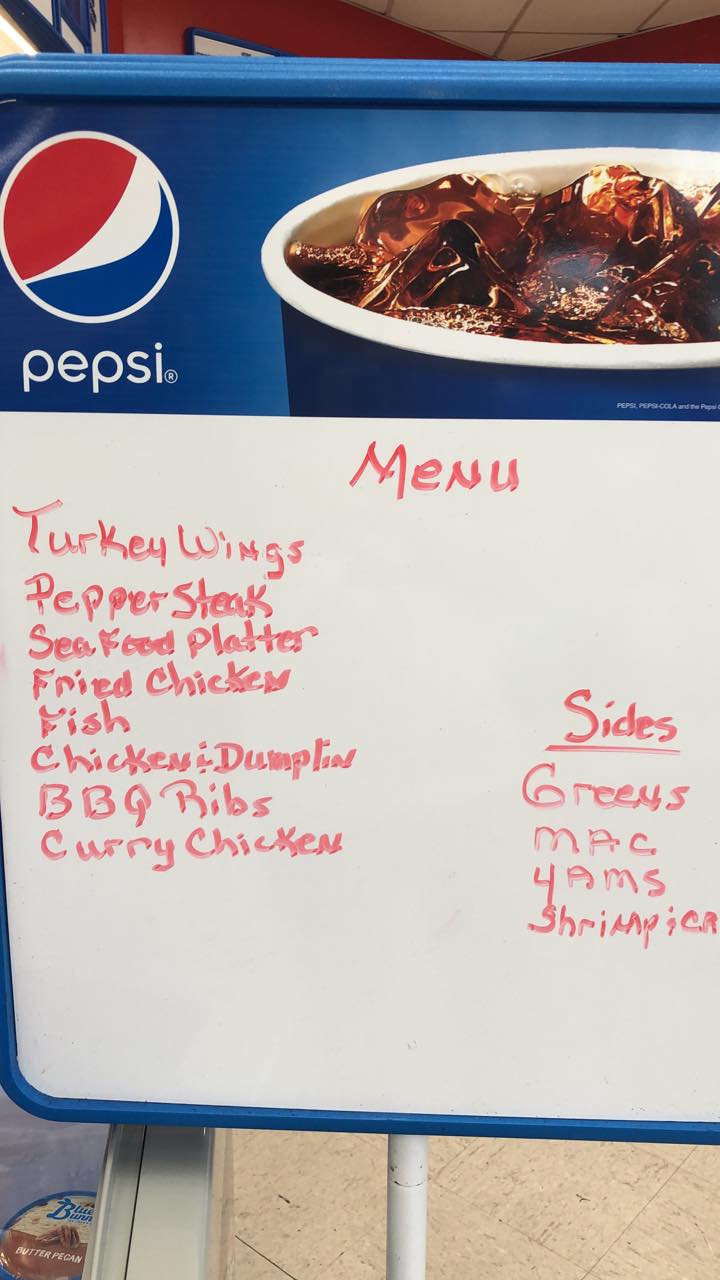 pepsi®
PEPSI, PEPSI-COLA and the Pepsi
Menu
Turkey Wings
Pepper Steak
Sea Food Platter
Fried Chicken
Fish
Chicken & Dumplin
BBQ Ribs
Curry Chicken
Sides
Greens
MAC
YAMS
Shrimp
Blue
Bunn
BUTTER PECAN